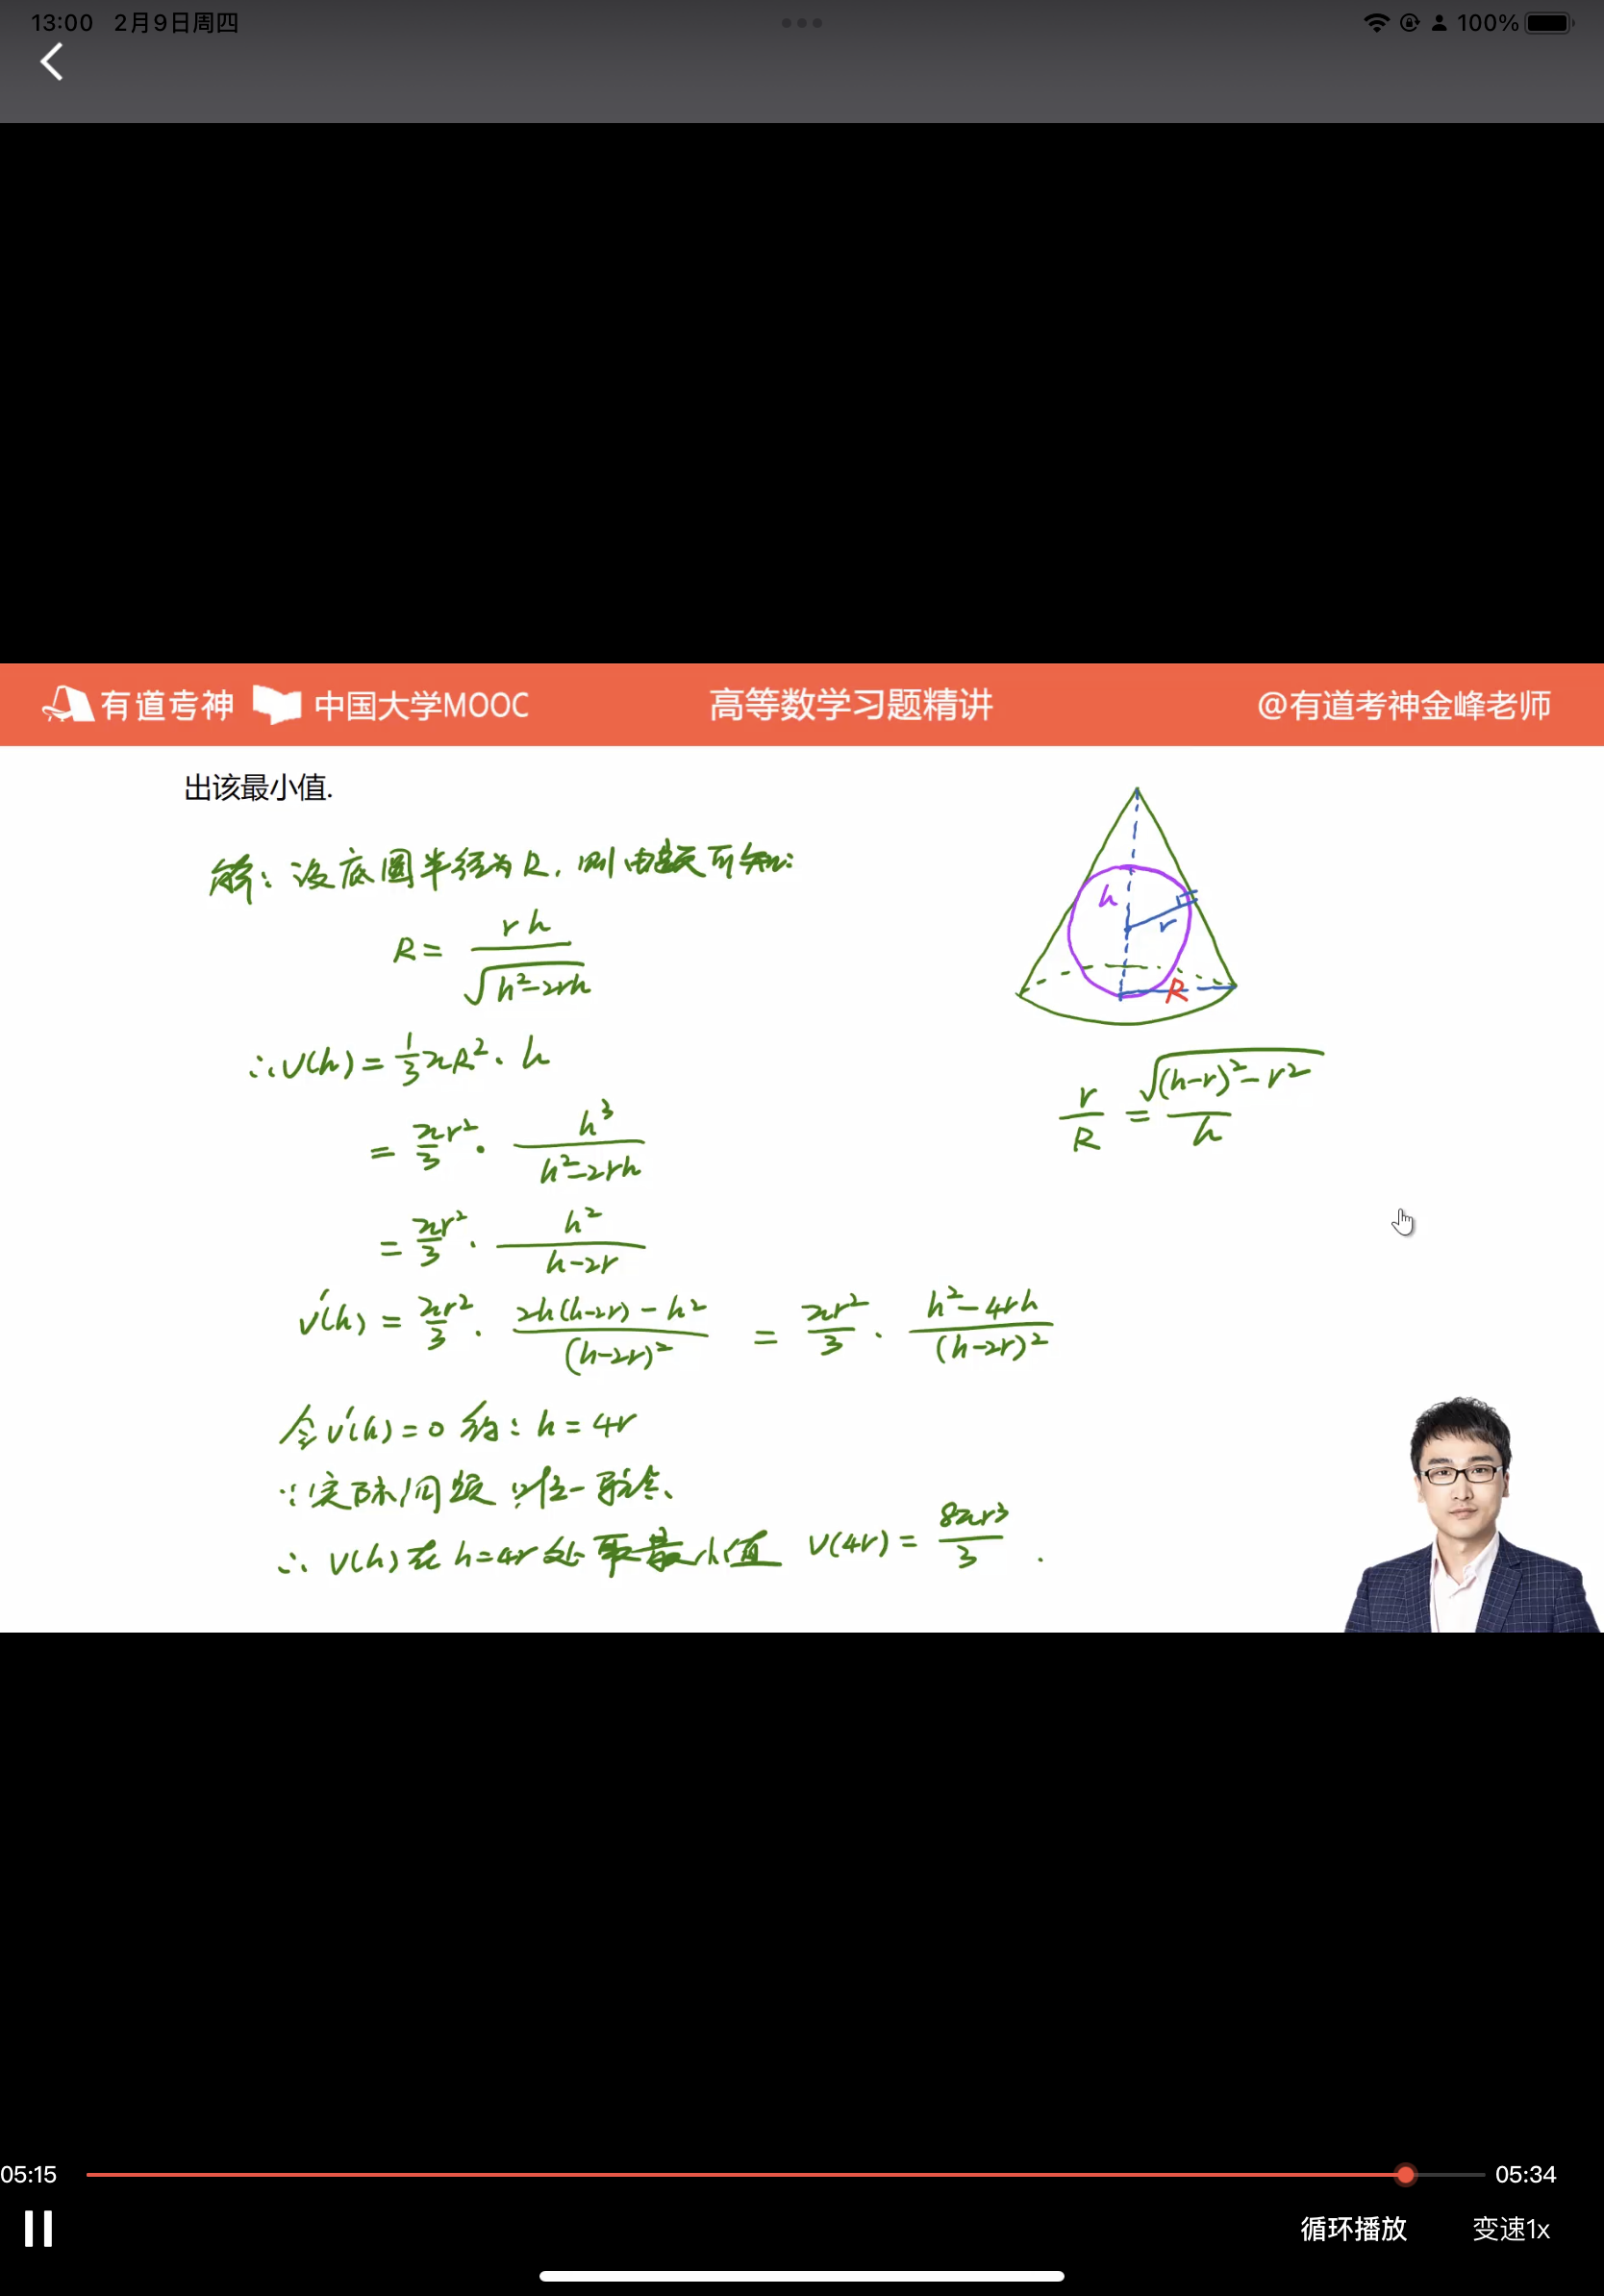 13:00 2月9日周四 100%
有道考神 中国大学MOOC 高等数学习题精讲 @有道考神金峰老师
出该最小值.
解：设底圆半径为R，则由题可知：
R = \frac{rh}{\sqrt{h^2-2rh}}
∴V(h) = \frac{1}{3}πR^2 · h
= \frac{πr^2}{3} · \frac{h^3}{h^2-2rh}
= \frac{πr^2}{3} · \frac{h^2}{h-2r}
V'(h) = \frac{πr^2}{3} · \frac{2h(h-2r)-h^2}{(h-2r)^2} = \frac{πr^2}{3} · \frac{h^2-4rh}{(h-2r)^2}
令V'(h)=0 得：h=4r
∵实际问题 唯一驻点、
∴ V(h)在h=4r处取最小值 V(4r) = \frac{8πr^3}{3}.
h
r
R
\frac{r}{R} = \frac{\sqrt{(h-r)^2-r^2}}{h}
05:15 05:34
循环播放 变速1x